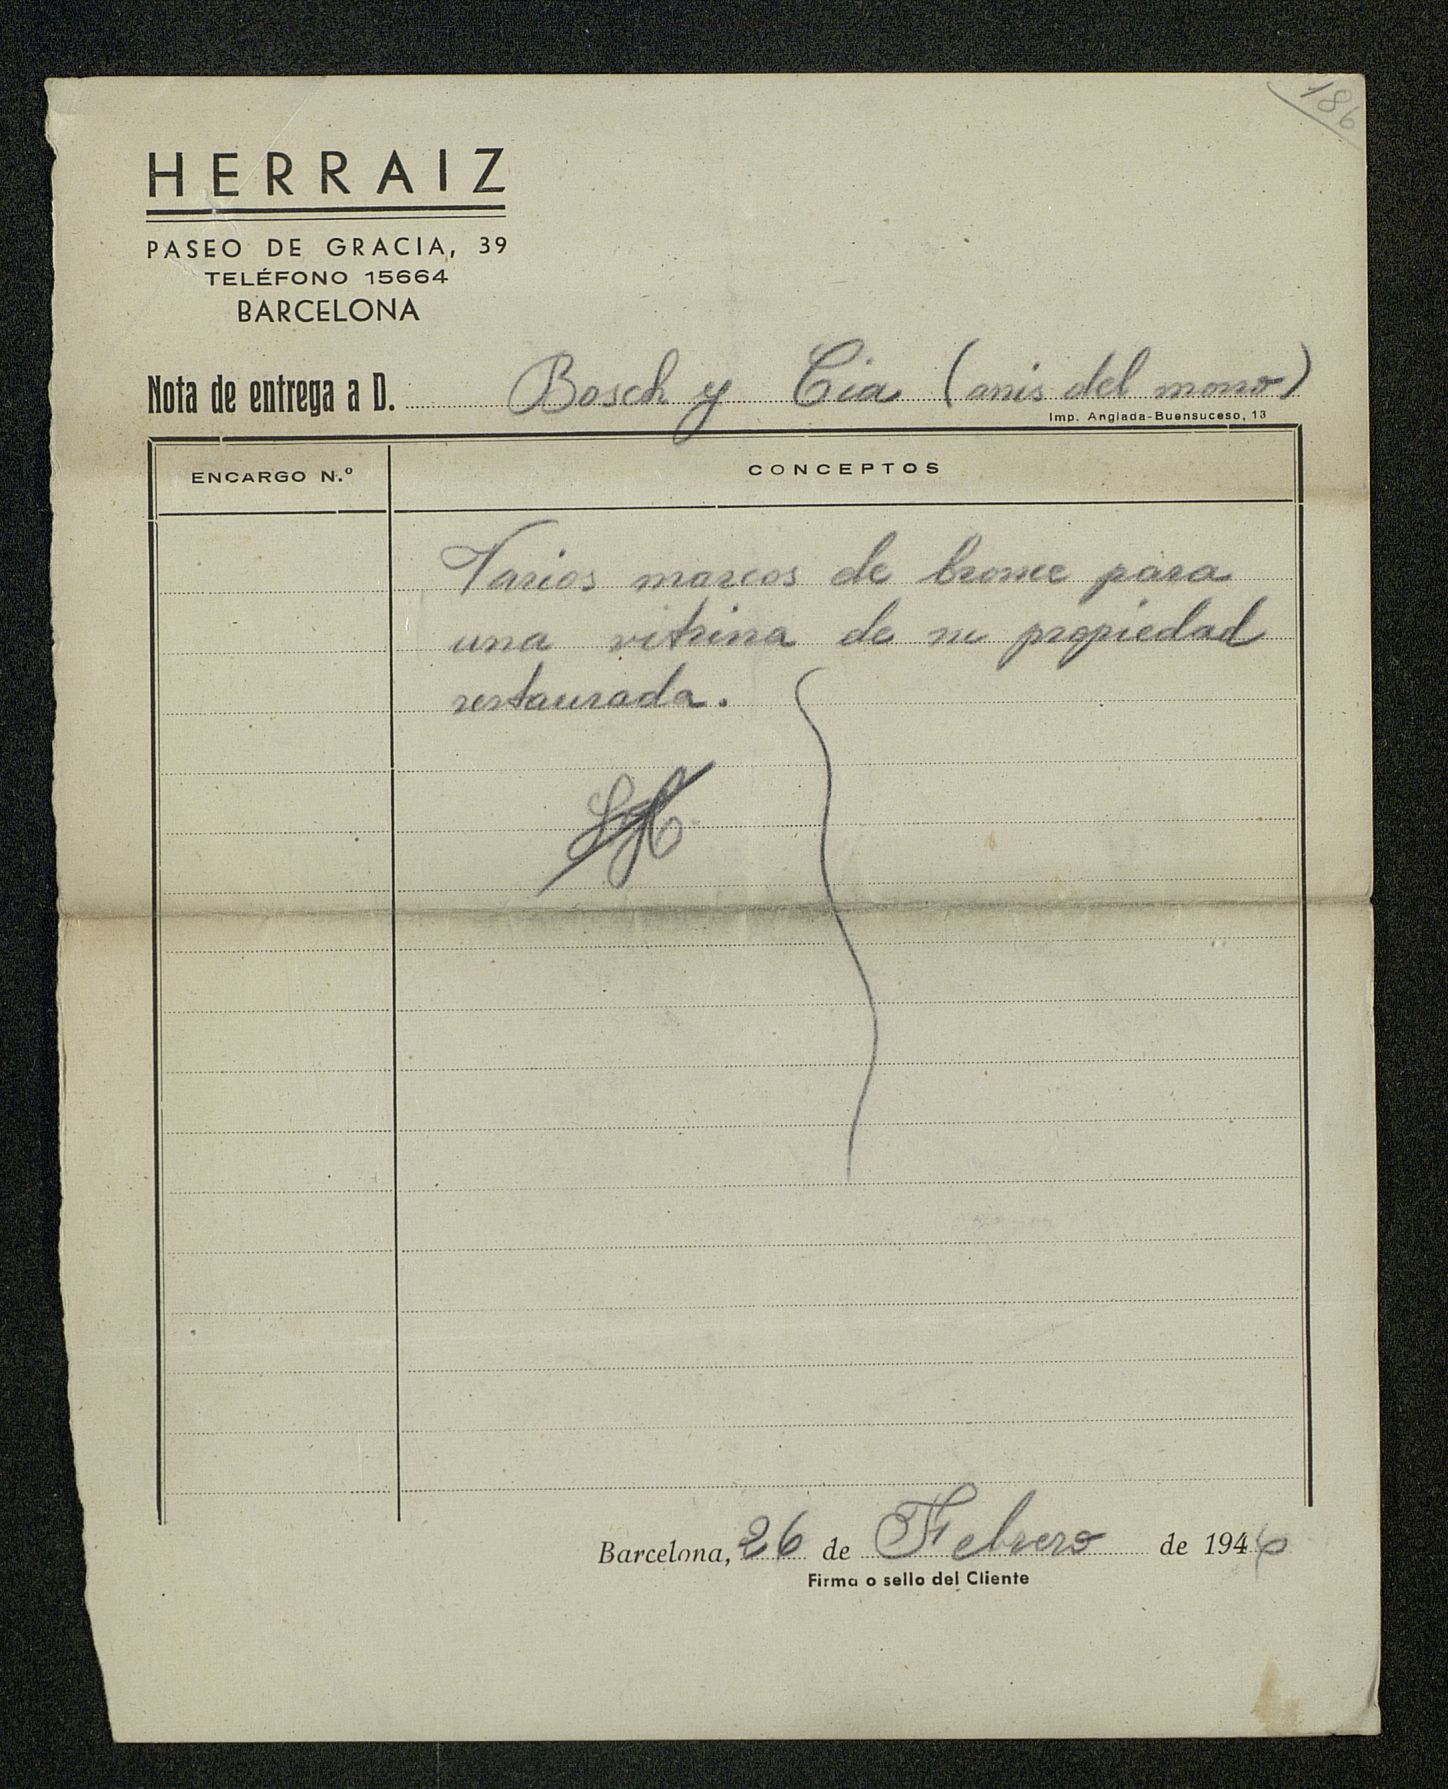 186
HERRAIZ
PASEO DE GRACIA, 39
TELÉFONO 15664
BARCELONA
Nota de entrega a D. Bosch y Cia (anis del mono)
Imp. Anglada-Buensuceso, 13
ENCARGO N.º CONCEPTOS
Varios marcos de bronce para
una vitrina de su propiedad
restaurada.
Barcelona, 26 de Febrero de 194
Firma o sello del Cliente